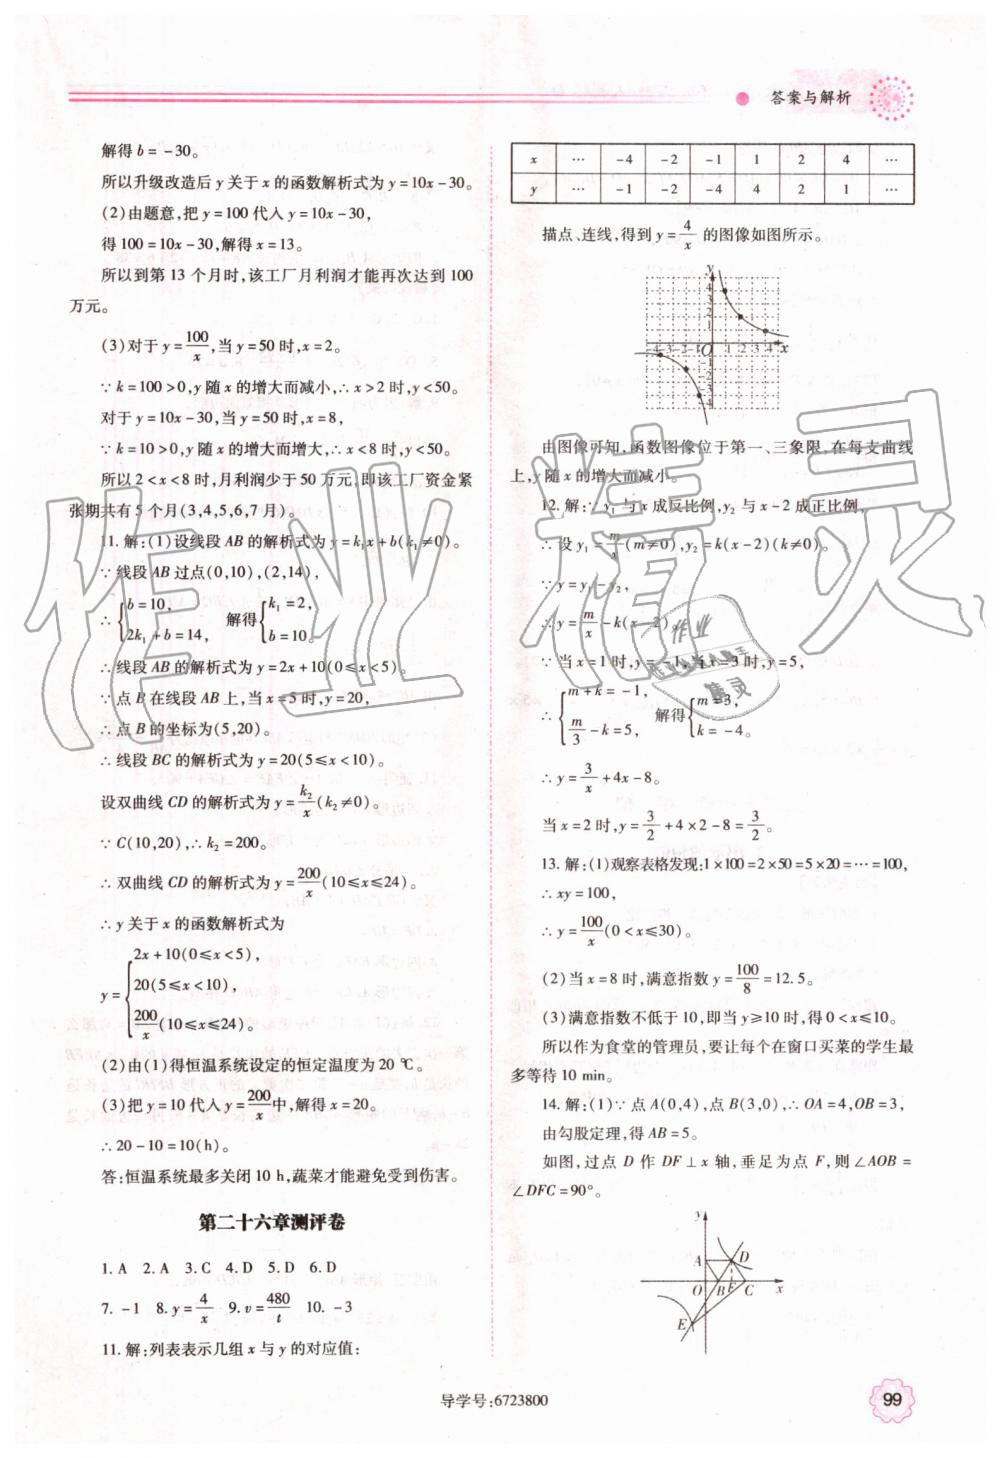 答案与解析
解得 b = -30。
所以升级改造后 y 关于 x 的函数解析式为 y = 10x - 30。
(2)由题意,把 y = 100 代入 y = 10x - 30,
得 100 = 10x - 30,解得 x = 13。
所以到第 13 个月时,该工厂月利润才能再次达到 100
万元。
(3)对于 y = 100/x,当 y = 50 时,x = 2。
∵ k = 100 > 0,y 随 x 的增大而减小,∴ x > 2 时,y < 50。
对于 y = 10x - 30,当 y = 50 时,x = 8,
∵ k = 10 > 0,y 随 x 的增大而增大,∴ x < 8 时,y < 50。
所以 2 < x < 8 时,月利润少于 50 万元,即该工厂资金紧
张期共有 5 个月(3,4,5,6,7 月)。
11. 解:(1)设线段 AB 的解析式为 y = k₁x + b(k₁ ≠ 0)。
∵ 线段 AB 过点(0,10),(2,14),
∴ { b = 10, 2k₁ + b = 14, 解得 { k₁ = 2, b = 10。
∴ 线段 AB 的解析式为 y = 2x + 10(0 ≤ x < 5)。
∵ 点 B 在线段 AB 上,当 x = 5 时,y = 20,
∴ 点 B 的坐标为(5,20)。
∴ 线段 BC 的解析式为 y = 20(5 ≤ x < 10)。
设双曲线 CD 的解析式为 y = k₂/x (k₂ ≠ 0)。
∵ C(10,20),∴ k₂ = 200。
∴ 双曲线 CD 的解析式为 y = 200/x (10 ≤ x ≤ 24)。
∴ y 关于 x 的函数解析式为
y = { 2x + 10(0 ≤ x < 5),
20(5 ≤ x < 10),
200/x (10 ≤ x ≤ 24)。
(2)由(1)得恒温系统设定的恒定温度为 20 ℃。
(3)把 y = 10 代入 y = 200/x 中,解得 x = 20。
∴ 20 - 10 = 10(h)。
答:恒温系统最多关闭 10 h,蔬菜才能避免受到伤害。
第二十六章测评卷
1. A 2. A 3. C 4. D 5. D 6. D
7. -1 8. y = 4/x 9. v = 480/t 10. -3
11. 解:列表表示几组 x 与 y 的对应值:
x … -4 -2 -1 1 2 4 …
y … -1 -2 -4 4 2 1 …
描点、连线,得到 y = 4/x 的图像如图所示。
y
4
3
2
1
-4 -3 -2 -1 O 1 2 3 4 x
-1
-2
-3
-4
由图像可知,函数图像位于第一、三象限,在每支曲线
上,y 随 x 的增大而减小。
12. 解:∵ y₁ 与 x 成反比例,y₂ 与 x - 2 成正比例,
∴ 设 y₁ = m/x (m ≠ 0),y₂ = k(x - 2)(k ≠ 0)。
∵ y = y₁ - y₂,
∴ y = m/x - k(x - 2)。
∵ 当 x = 1 时,y = -1,当 x = 3 时,y = 5,
∴ { m + k = -1, m/3 - k = 5, 解得 { m = 3, k = -4。
∴ y = 3/x + 4x - 8。
当 x = 2 时,y = 3/2 + 4 × 2 - 8 = 3/2。
13. 解:(1)观察表格发现:1 × 100 = 2 × 50 = 5 × 20 = … = 100,
∴ xy = 100,
∴ y = 100/x (0 < x ≤ 30)。
(2)当 x = 8 时,满意指数 y = 100/8 = 12.5。
(3)满意指数不低于 10,即当 y ≥ 10 时,得 0 < x ≤ 10。
所以作为食堂的管理员,要让每个在窗口买菜的学生最
多等待 10 min。
14. 解:(1)∵ 点 A(0,4),点 B(3,0),∴ OA = 4,OB = 3,
由勾股定理,得 AB = 5。
如图,过点 D 作 DF ⊥ x 轴,垂足为点 F,则 ∠AOB =
∠DFC = 90°。
y
A D
O B F C x
E
作业精灵
作业
精灵
导学号:6723800
99